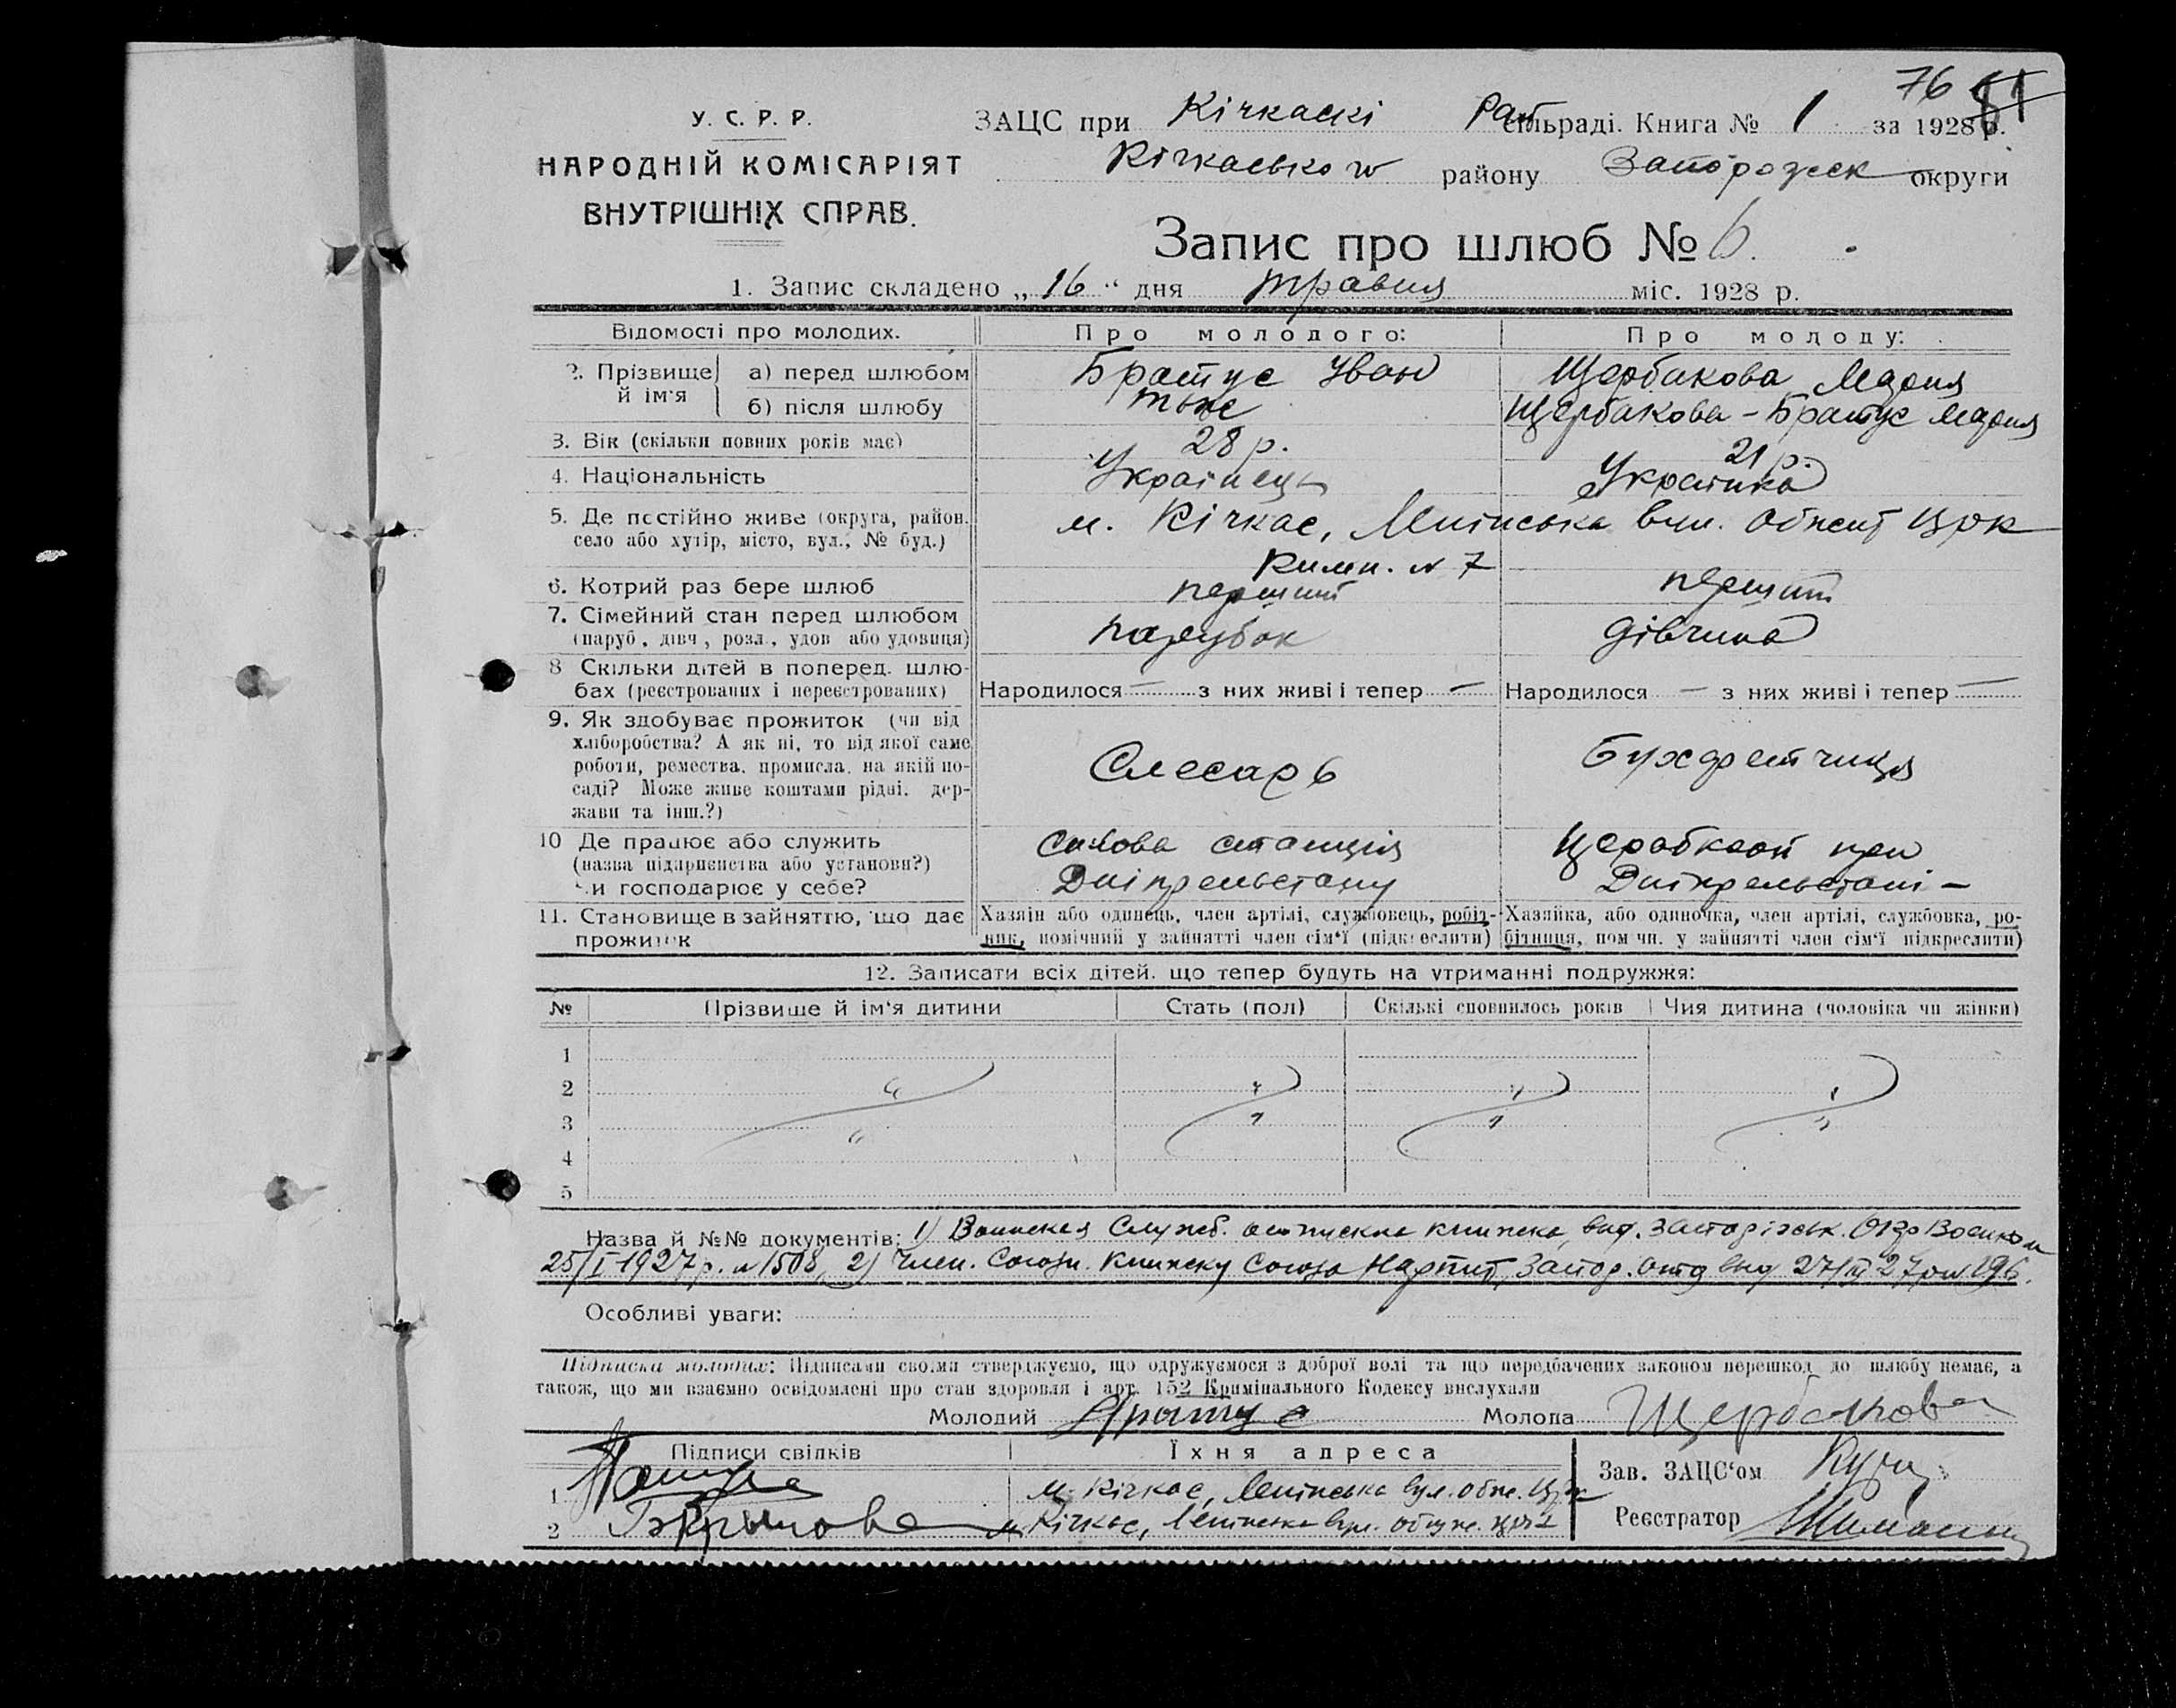 76 81
У. С. Р. Р.
НАРОДНІЙ КОМІСАРІЯТ
ВНУТРІШНІХ СПРАВ.
ЗАЦС при Кічкаскі Рай сільраді. Книга № 1 за 1928 р.
Кічкаського району Запорожск округи
Запис про шлюб № 6.
1. Запис складено „16" дня травня міс. 1928 р.
Відомості про молодих. Про молодого: Про молоду:
2. Прізвище й ім'я а) перед шлюбом Братус Іван Щербакова Мария
б) після шлюбу тоже Щербакова-Братус Мария
3. Вік (скільки повних років має) 28 р. 21 р.
4. Національність Українець Українка
5. Де постійно живе (округа, район. село або хутір, місто, вул., № буд.) м. Кічкас, Ленінська вул. Обжит ЦРК
Кимн. № 7
6. Котрий раз бере шлюб перший перший
7. Сімейний стан перед шлюбом (паруб., дівч, розл., удов або удовиця) парубок дівчина
8 Скільки дітей в поперед. шлюбах (реєстрованих і нереєстрованих) Народилося — з них живі і тепер — Народилося — з них живі і тепер —
9. Як здобуває прожиток (чи від
хліборобства? А як ні, то від якої саме
роботи, ремества, промисла, на якій по-
саді? Може живе коштами рідні, дер-
жави та інш.?)
Слесарь
Буфетчиця
10 Де працює або служить
(назва підприємства або установи?)
чи господарює у себе?
Силова станция
Дніпрельстану
Церабкооп при
Дніпрельстані -
11. Становище в зайняттю, що дає
прожиток
Хазяїн або одинець, член артілі, службовець, робіт-
ник, помічний у зайнятті член сім'ї (підкреслити)
Хазяйка, або одиночка, член артілі, службовка, ро-
бітниця, пом чн. у зайнятті член сім'ї підкреслити)
12. Записати всіх дітей. що тепер будуть на утриманні подружжя:
№ Прізвище й ім'я дитини Стать (пол) Скількі сповнилось років Чия дитина (чоловіка чи жінки)
1
2
3
4
5
Назва й №№ документів: 1) Воинская Служб. книжка, выд.
25/I 1927 р. № 1508, 2) Член. Союзн. Книжку Союза Нарпит, Запор. отд выд
Особливі уваги:
Підписка молодих: Підписами своїми стверджуємо, що одружуємося з доброї волі та що передбачених законом перешкод до шлюбу немає, а
також, що ми взаємно освідомлені про стан здоровля і арт. 152 Кримінального Кодексу вислухали
Молодий Братус Молода Щербакова
Підписи свідків Їхня адреса Зав. ЗАЦС'ом
1 м. Кічкас, Ленінська вул. обж. Црк
2 м. Кічкас, Ленінська вул. общж. црк Реєстратор